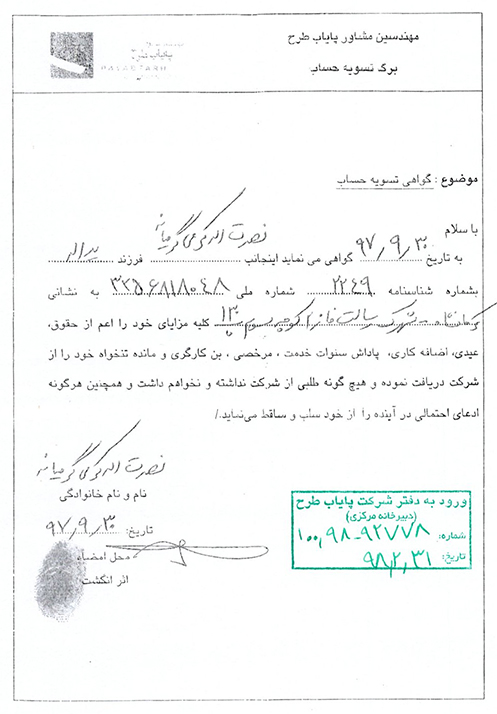 مهندسین مشاور پایاب طرح
برگ تسویه حساب
پایاب طرح
موضوع : گواهی تسویه حساب
با سلام
به تاریخ ۹۷,۹,۳۰ گواهی می نماید اینجانب نصرت اله کرمی گرمیانه فرزند یداله
بشماره شناسنامه ۲۲۴۹ شماره ملی ۳۲۵۶۸۱۸۰۴۸ به نشانی
کرمانشاه - شهرک رسالت فاز۱ کوچه سوم پ۱۳ کلیه مزایای خود را اعم از حقوق،
عیدی، اضافه کاری، پاداش سنوات خدمت، مرخصی ، بن کارگری و مانده تنخواه خود را از
شرکت دریافت نموده و هیچ گونه طلبی از شرکت نداشته و نخواهم داشت و همچنین هرگونه
ادعای احتمالی در آینده را از خود سلب و ساقط می‌نماید./
نصرت اله کرمی گرمیانه
نام و نام خانوادگی
تاریخ: ۹۷,۹,۳۰
محل امضاء
اثر انگشت
ورود به دفتر شرکت پایاب طرح
(دبیرخانه مرکزی)
شماره: ۱۰۰,۹۸-۹۲۷۷۸
تاریخ: ۹۸,۲,۳۱